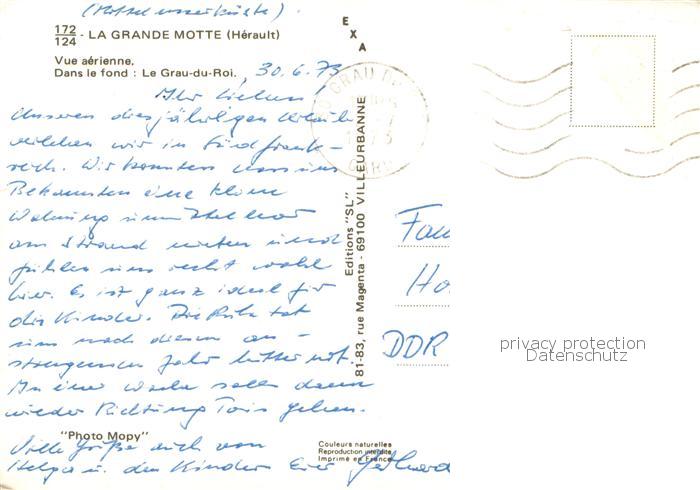 (Mittelmeerküste)
172
124 - LA GRANDE MOTTE (Hérault)
Vue aérienne.
Dans le fond : Le Grau-du-Roi.
30.6.73
Ihr Lieben,
Unseren diesjährigen Urlaub
verleben wir in Südfrank-
reich. Wir konnten von
Bekannten eine kleine
Wohnung
am Strand mieten und
fühlen uns recht wohl
hier. Es ist ganz ideal für
die Kinder. Die Ruhe tut
uns nach diesem an-
strengenden Jahr bitter not.
In einer Woche soll's dann
wieder Richtung gehen.
Viele Grüße auch von
Helga u. den Kinder Euer Gerhard
"Photo Mopy"
Couleurs naturelles
Reproduction interdite
Imprimé en France
EXA
Editions "SL"
81-83, rue Magenta - 69100 VILLEURBANNE
GRAU DU
GARD
Fam
Ho
DDR
privacy protection
Datenschutz